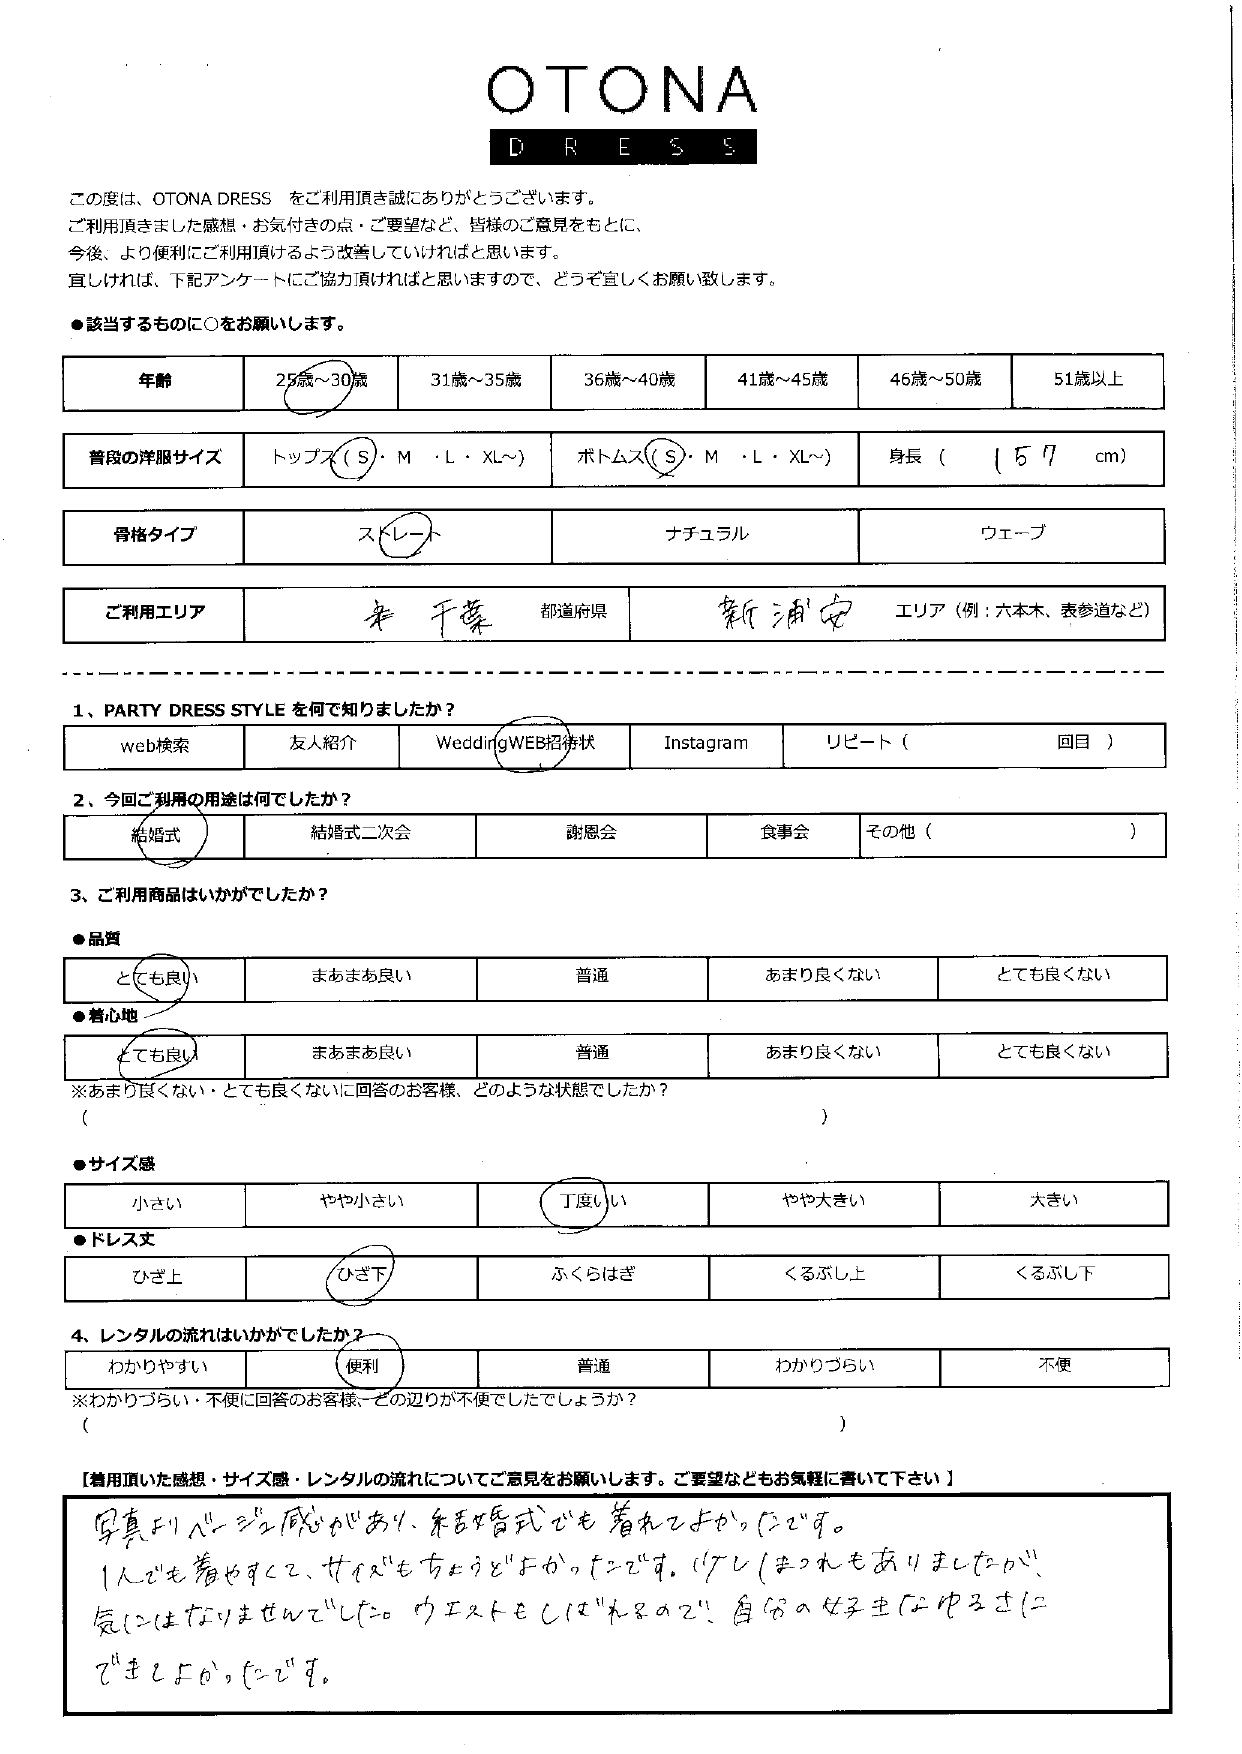 OTONA
DRESS
この度は、OTONA DRESS をご利用頂き誠にありがとうございます。
ご利用頂きました感想・お気付きの点・ご要望など、皆様のご意見をもとに、
今後、より便利にご利用頂けるよう改善していければと思います。
宜しければ、下記アンケートにご協力頂ければと思いますので、どうぞ宜しくお願い致します。
●該当するものに○をお願いします。
年齢 25歳～30歳 31歳～35歳 36歳～40歳 41歳～45歳 46歳～50歳 51歳以上
普段の洋服サイズ トップス(S・M・L・XL～) ボトムス(S・M・L・XL～) 身長(157 cm)
骨格タイプ ストレート ナチュラル ウェーブ
ご利用エリア 千葉 都道府県 新浦安 エリア（例：六本木、表参道など）
1、PARTY DRESS STYLE を何で知りましたか？
web検索 友人紹介 WeddingWEB招待状 Instagram リピート（ 回目 ）
2、今回ご利用の用途は何でしたか？
結婚式 結婚式二次会 謝恩会 食事会 その他（ ）
3、ご利用商品はいかがでしたか？
●品質
とても良い まあまあ良い 普通 あまり良くない とても良くない
●着心地
とても良い まあまあ良い 普通 あまり良くない とても良くない
※あまり良くない・とても良くないに回答のお客様、どのような状態でしたか？
（ ）
●サイズ感
小さい やや小さい 丁度いい やや大きい 大きい
●ドレス丈
ひざ上 ひざ下 ふくらはぎ くるぶし上 くるぶし下
4、レンタルの流れはいかがでしたか？
わかりやすい 便利 普通 わかりづらい 不便
※わかりづらい・不便に回答のお客様、どの辺りが不便でしたでしょうか？
（ ）
【着用頂いた感想・サイズ感・レンタルの流れについてご意見をお願いします。ご要望などもお気軽に書いて下さい 】
写真よりベージュ感があり、結婚式でも着れてよかったです。
1人でも着やすくて、サイズもちょうどよかったです。少しほつれもありましたが、
気にはなりませんでした。ウエストもしばれるので、自分の好きなゆるさに
できてよかったです。